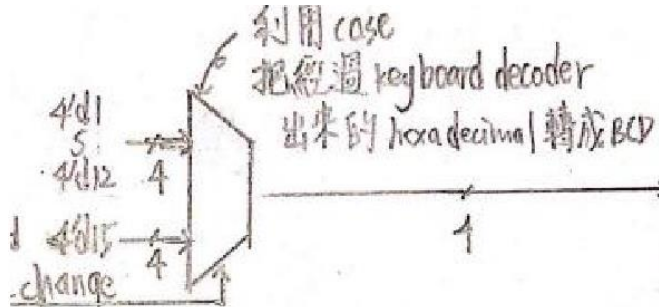 利用 case
把經過 keyboard decoder
出來的 hexadecimal 轉成 BCD
4'd1
4'd12
4
4'd15
4
4
change